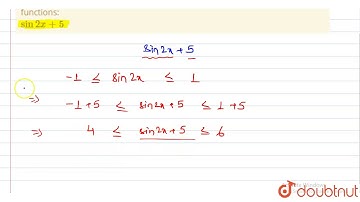 functions:
sin 2x + 5
sin2x + 5
-1 ≤ sin2x ≤ 1
⇒ -1+5 ≤ sin2x+5 ≤ 1+5
⇒ 4 ≤ sin2x+5 ≤ 6
doubtnut